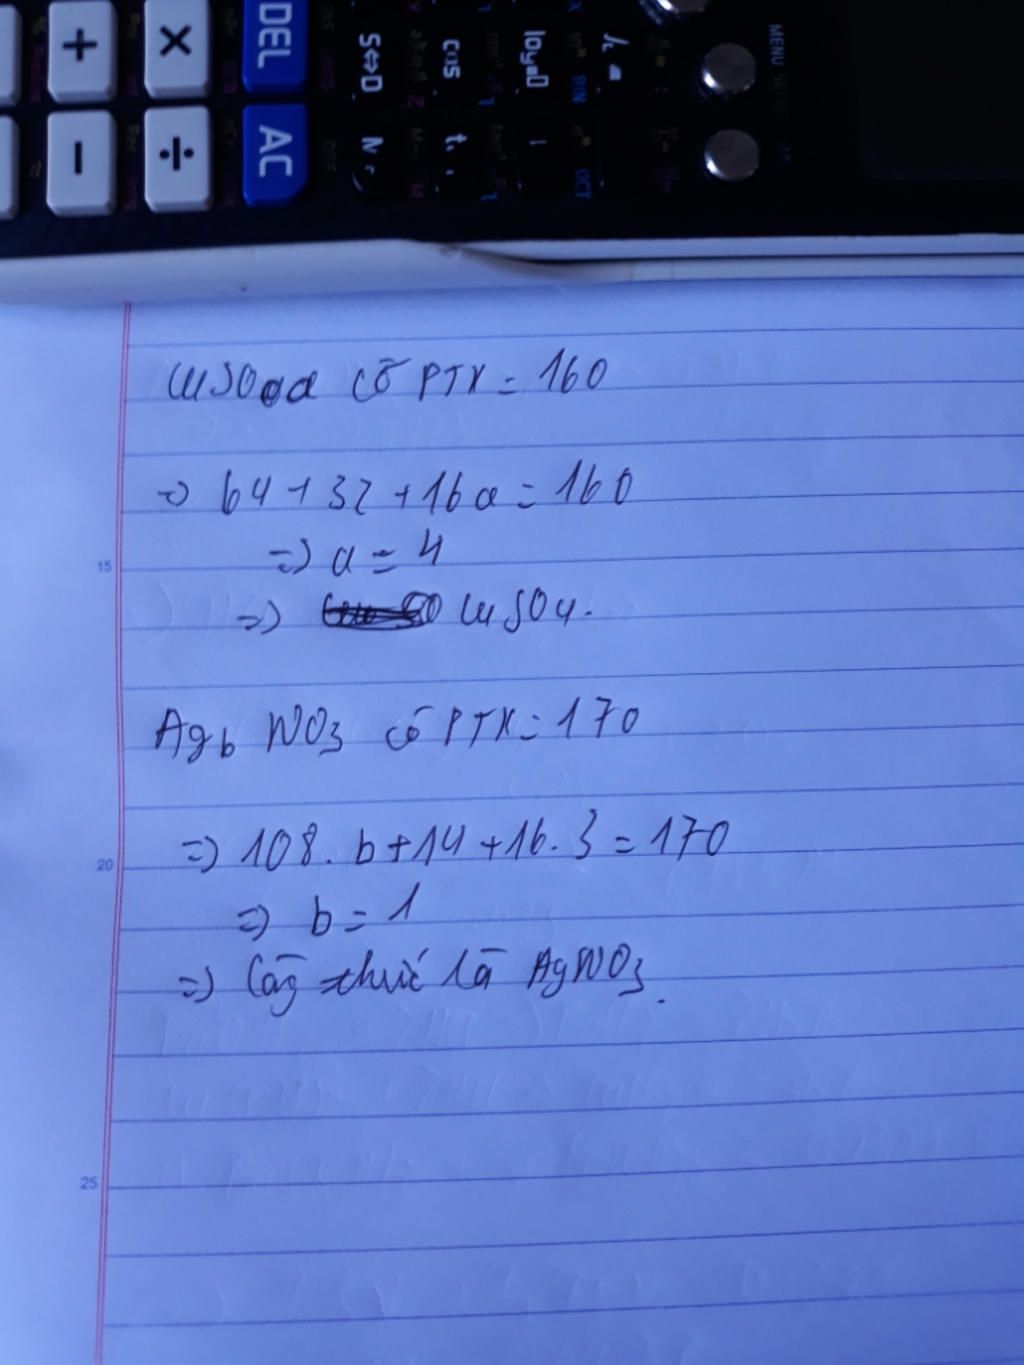 DEL
AC
S⇔D
cos
BIN
OCT
MENU
CuSOa có PTK = 160
=> 64 + 32 + 16a = 160
=> a = 4
15
=> CuSO4.
Agb NO3 có PTK = 170
=> 108. b + 14 + 16. 3 = 170
20
=> b = 1
=> Công thức là AgNO3.
25